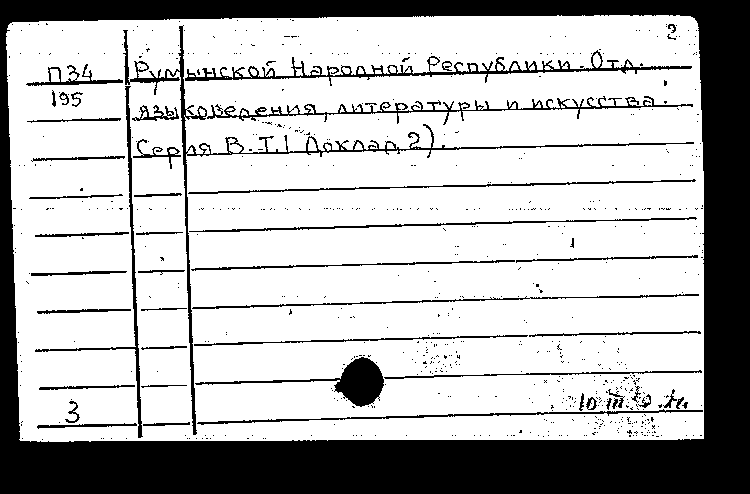 2
П34 Румынской Народной Республики. Отд.
195 языковедения, литературы и искусства.
Серия В. Т.1 Доклад 2).
3
10 III